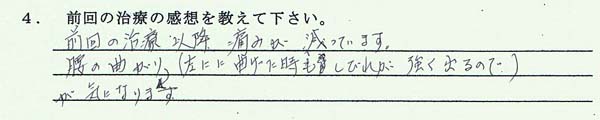 4. 前回の治療の感想を教えて下さい。
前回の治療以降 痛みが 減っています。
腰の曲がり、(左にに曲げた時もしびれが 強く出るので)
が 気になります